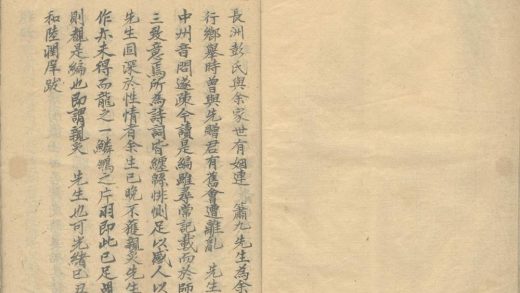 長洲彭氏與余家世有姻連 簫九先生為余
行鄉舉時曾與先贈君有舊會遭離亂 先生
中州音問遂疎今讀是編雖尋常記載而於師
三致意焉所為詩詞皆纏緜悱惻足以感人以
先生固深於性情者余生已晚不獲親炙先生
作亦未得而龍之一鱗鴻之片羽即此已足
則覩是編也即謂親炙 先生也可光緒己丑
和陸潤庠跋